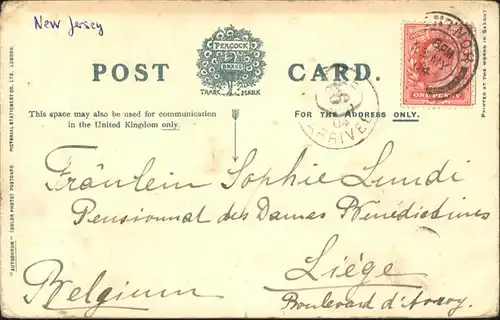 New Jersey
PEACOCK
BRAND
TRADE MARK
POST CARD.
This space may also be used for communication
in the United Kingdom only.
FOR THE ADDRESS ONLY.
ARRIVED
04
ONE PENNY
MY
04
Fräulein Sophie Lundi
Pensionnat des Dames Bénédictines
Liége
Belgium
Boulevard d'Avroy.
"AUTOCHROM" (COLOR PHOTO) POSTCARD PICTORIAL STATIONERY CO. LTD., LONDON.
PRINTED AT THE WORKS IN SAXONY